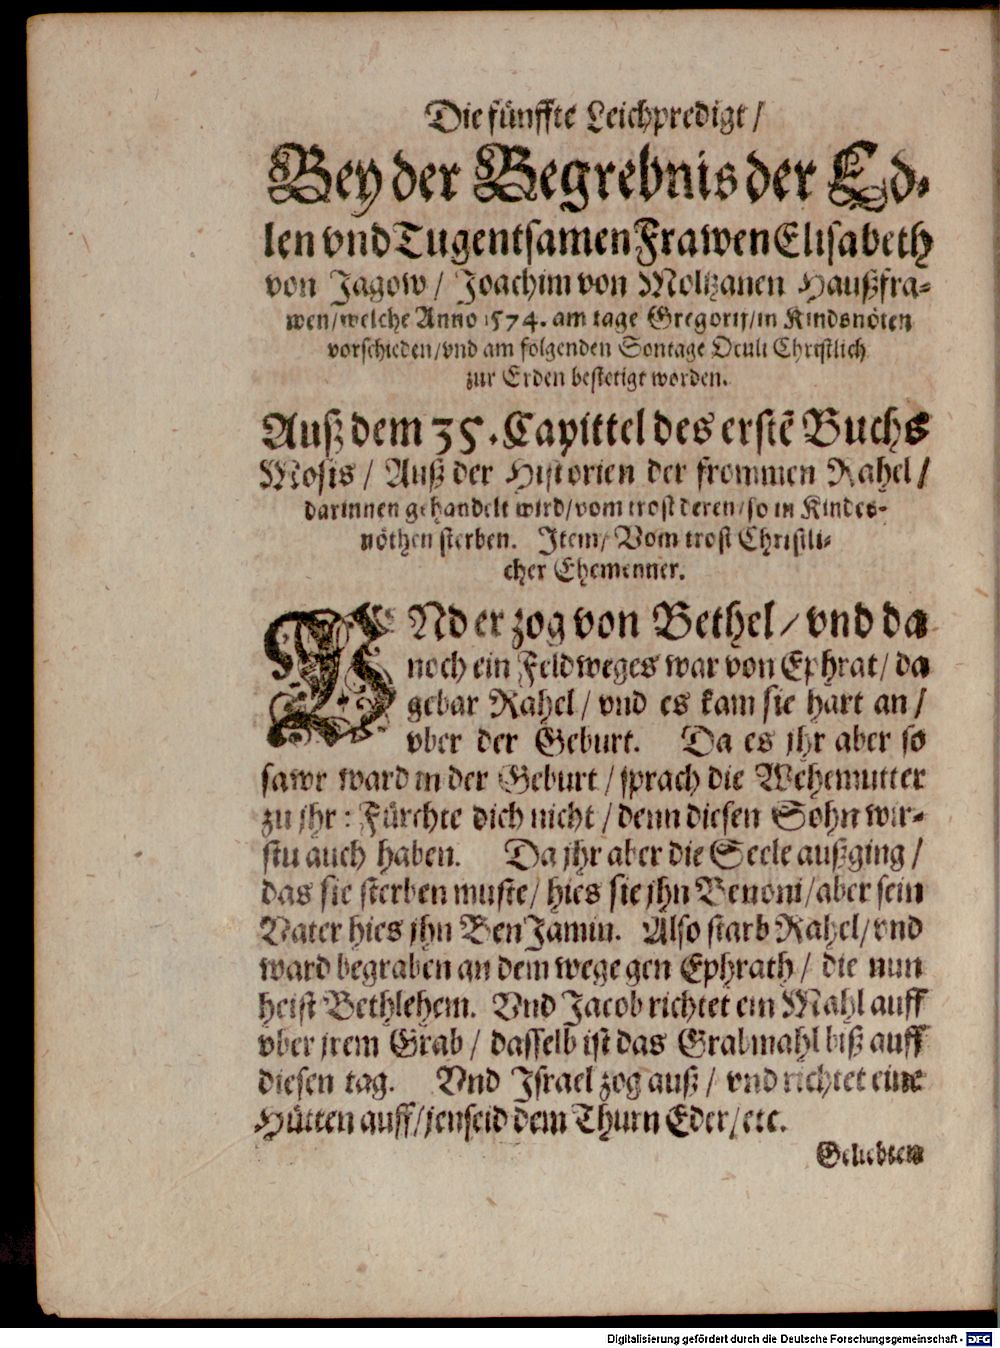 Die fünffte Leichpredigt /
Bey der Begrebnis der Ed-
len vnd Tugentsamen Frawen Elisabeth
von Jagow / Joachim von Moltzanen Haußfra-
wen / welche Anno 1574. am tage Gregorij / in Kindsnöten
vorschieden / vnd am folgenden Sontage Oculi Christlich
zur Erden bestetigt worden.
Auß dem 35. Capittel des erstẽ Buchs
Mosis / Auß der Historien der frommen Rahel /
darinnen gehandelt wird / vom trost deren / so in Kindes-
nöthen sterben. Item / Vom trost Christli-
cher Ehemenner.
VNd er zog von Bethel / vnd da
noch ein Feldweges war von Ephrat / da
gebar Rahel / vnd es kam sie hart an /
vber der Geburt. Da es jhr aber so
sawr ward in der Geburt / sprach die Wehemutter
zu jhr : Fürchte dich nicht / denn diesen Sohn wir-
stu auch haben. Da jhr aber die Seele außging /
das sie sterben muste / hies sie jhn Benoni / aber sein
Vater hies jhn BenJamin. Also starb Rahel / vnd
ward begraben an dem wege gen Ephrath / die nun
heist Bethlehem. Vnd Jacob richtet ein Mahl auff
vber jrem Grab / dasselb ist das Grabmahl biß auff
diesen tag. Vnd Israel zog auß / vnd richtet eine
Hütten auff / jenseid dem Thurn Eder / etc.
Geliebten
Digitalisierung gefördert durch die Deutsche Forschungsgemeinschaft - DFG